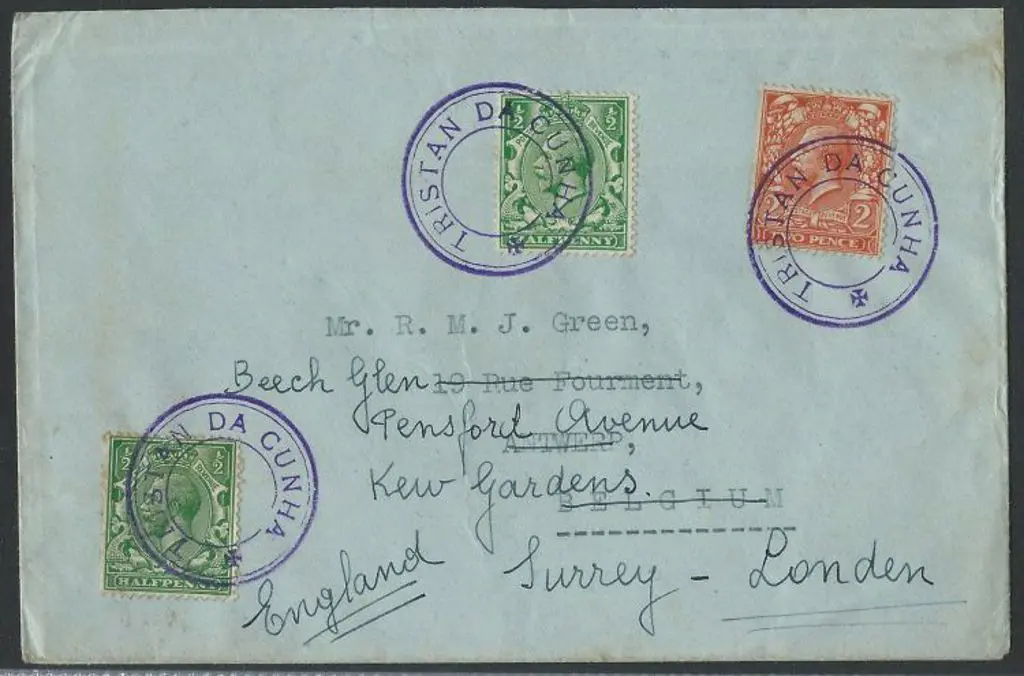 TRISTAN DA CUNHA
½ ½
HALFPENNY
TRISTAN DA CUNHA
2 2
TWO PENCE
Mr. R. M. J. Green,
Beech Glen 19 Rue Fourment,
Pensford Avenue
ANTWERP,
Kew Gardens.
BELGIUM
England Surrey - Londen
TRISTAN DA CUNHA
½ ½
HALFPENNY